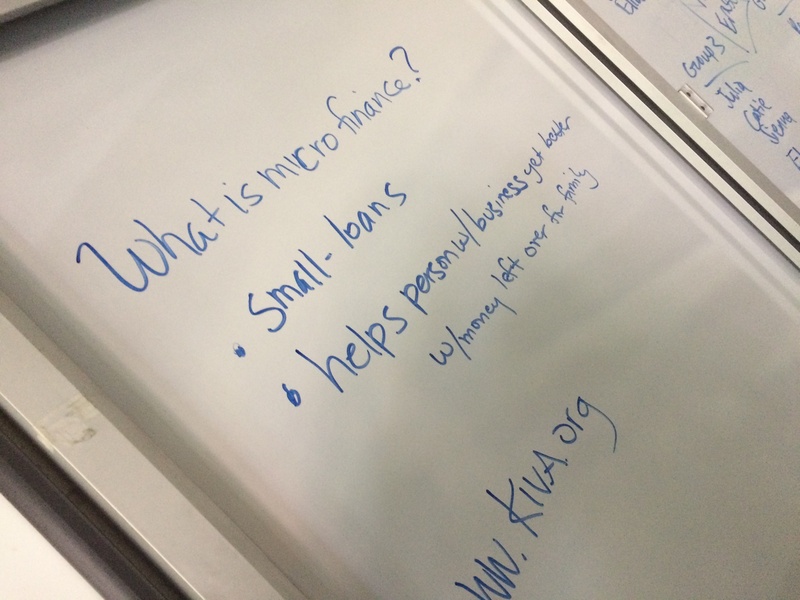 What is microfinance?
• Small-loans
• helps person w/business yet better
w/money left over for family
WW. KIVA.org
Group 3
Julia
Catie
Sienna